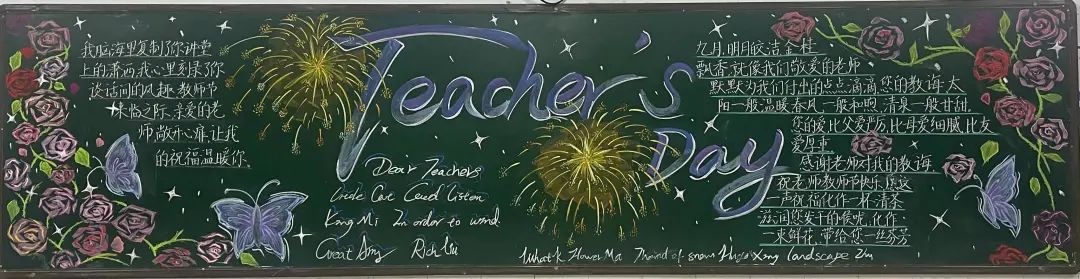 我脑海里复制了你讲堂
上的潇洒我心里刻录了你
谈话间的风趣.教师节
来临之际.亲爱的老
师敞开心扉.让我
的祝福温暖你.
Teacher's
Day
Dear Teachers
Listen
In order to wind
Great Rich
What Flower Ma of snow landscape
九月.明月皎洁金桂
飘香.就像我们敬爱的老师.
默默为我们付出的点点滴滴.您的教诲.太
阳一般温暖.春风一般和煦.清泉一般甘甜.
您的爱.比父爱严厉.比母爱细腻.比友
爱厚重
感谢老师对我的教诲
祝老师教师节快乐.愿这
一声祝福化作一杯清茶
滋润您发干的喉咙.化作
一束鲜花.带给您一丝芬芳